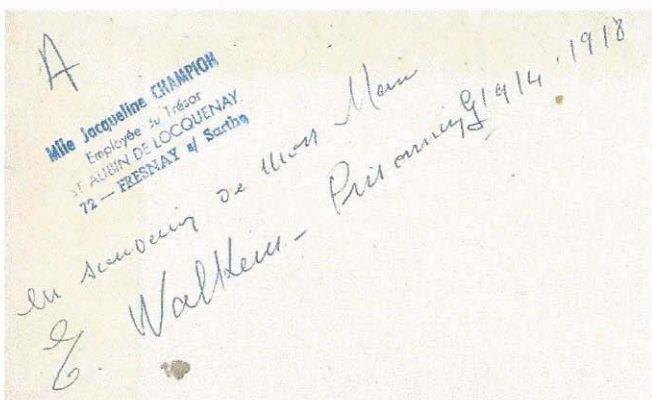 A
Mlle Jacqueline CHAMPION
Employée du Trésor
ST AUBIN DE LOCQUENAY
72 — FRESNAY s/ Sarthe
en souvenir de mon
E. Walkein - Prisonnier 1914.1918